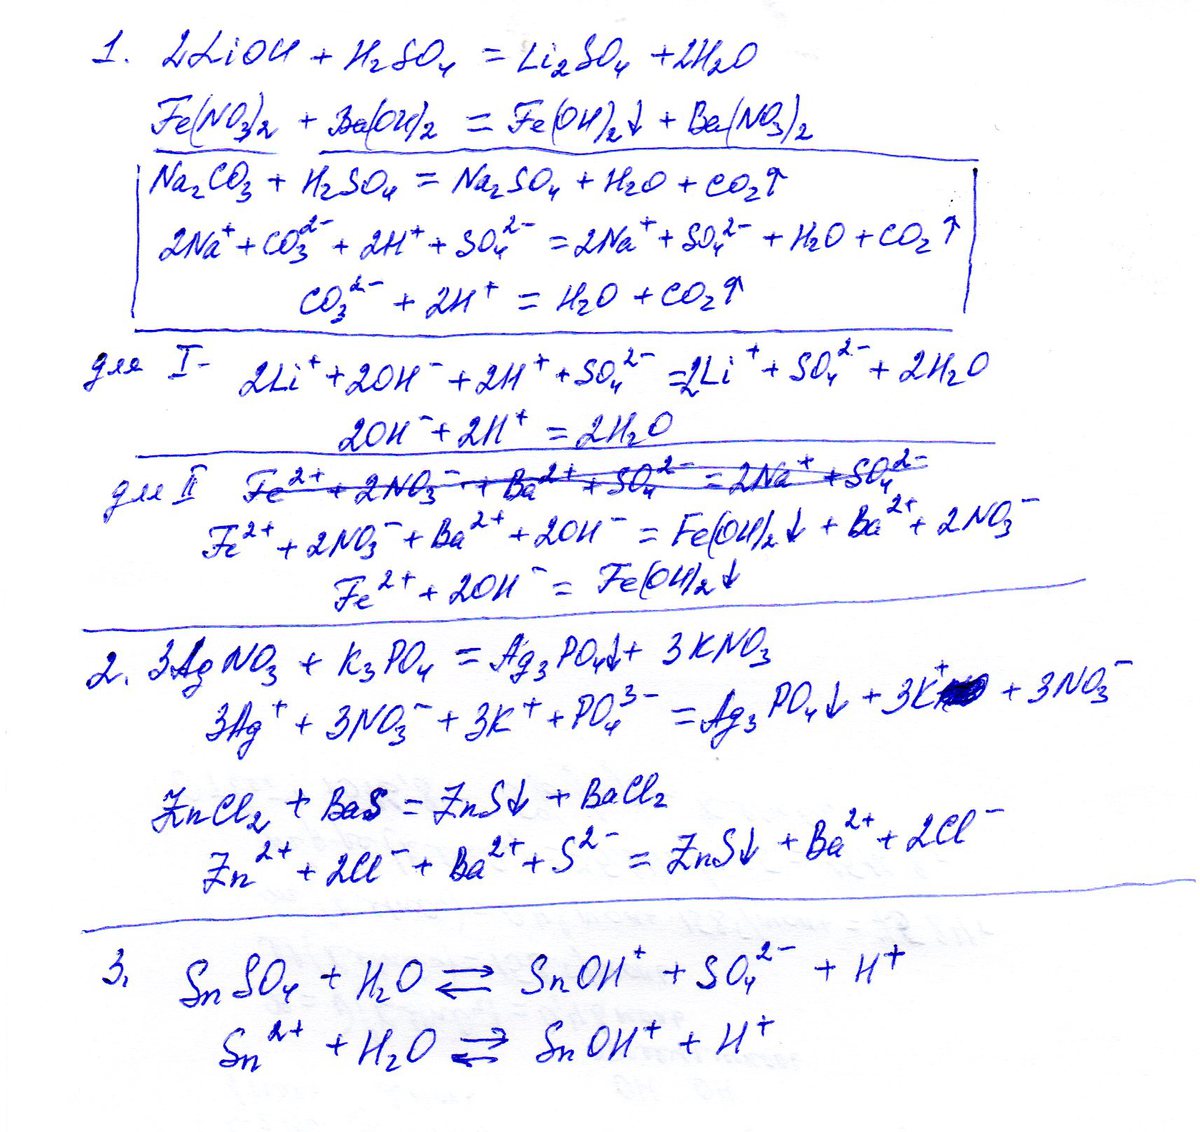 1. 2LiOH + H₂SO₄ = Li₂SO₄ + 2H₂O
Fe(NO₃)₂ + Ba(OH)₂ = Fe(OH)₂↓ + Ba(NO₃)₂
Na₂CO₃ + H₂SO₄ = Na₂SO₄ + H₂O + CO₂↑
2Na⁺ + CO₃²⁻ + 2H⁺ + SO₄²⁻ = 2Na⁺ + SO₄²⁻ + H₂O + CO₂↑
CO₃²⁻ + 2H⁺ = H₂O + CO₂↑
для I- 2Li⁺ + 2OH⁻ + 2H⁺ + SO₄²⁻ = 2Li⁺ + SO₄²⁻ + 2H₂O
2OH⁻ + 2H⁺ = 2H₂O
для II Fe²⁺ + 2NO₃⁻ + Ba²⁺ + SO₄²⁻ = 2Na⁺ + SO₄²⁻
Fe²⁺ + 2NO₃⁻ + Ba²⁺ + 2OH⁻ = Fe(OH)₂↓ + Ba²⁺ + 2NO₃⁻
Fe²⁺ + 2OH⁻ = Fe(OH)₂↓
2. 3AgNO₃ + K₃PO₄ = Ag₃PO₄↓ + 3KNO₃
3Ag⁺ + 3NO₃⁻ + 3K⁺ + PO₄³⁻ = Ag₃PO₄↓ + 3K⁺ + 3NO₃⁻
ZnCl₂ + BaS = ZnS↓ + BaCl₂
Zn²⁺ + 2Cl⁻ + Ba²⁺ + S²⁻ = ZnS↓ + Ba²⁺ + 2Cl⁻
3. SnSO₄ + H₂O ⇄ SnOH⁺ + SO₄²⁻ + H⁺
Sn²⁺ + H₂O ⇄ SnOH⁺ + H⁺